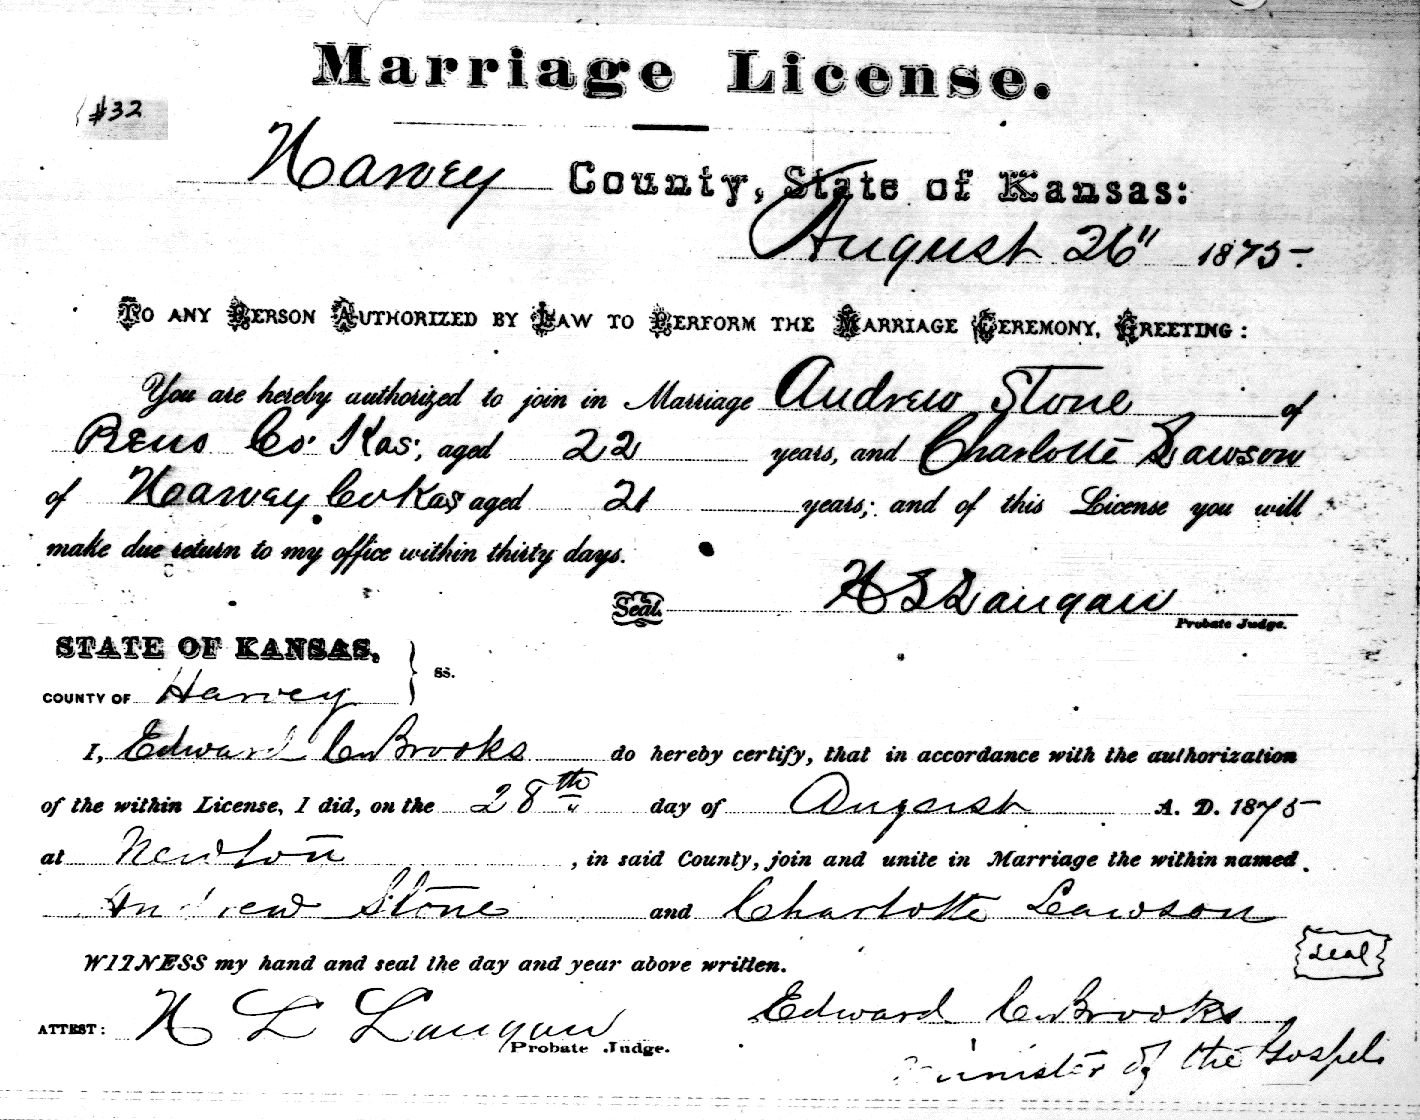 Marriage License.
#32
Harvey County, State of Kansas:
August 26" 1875.
To any Person Authorized by Law to Perform the Marriage Ceremony, Greeting:
You are hereby authorized to join in Marriage Andrew Stone of
Reno Co. Kas; aged 22 years, and Charlotte Lawson
of Harvey Co Kas aged 21 years; and of this License you will
make due return to my office within thirty days.
Seal. H L Langan
Probate Judge.
STATE OF KANSAS,
COUNTY OF Harvey } ss.
I, Edward C. Brooks do hereby certify, that in accordance with the authorization
of the within License, I did, on the 28th day of August A. D. 1875
at Newton , in said County, join and unite in Marriage the within named
Andrew Stone and Charlotte Lawson
WITNESS my hand and seal the day and year above written.
Seal
ATTEST: H L Langan Edward C. Brooks
Probate Judge. Minister of the Gospel.